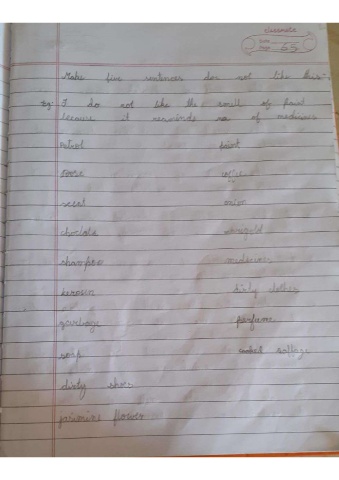 classmate
65
Make five sentences doe not like this:-
Eg:- I do not like the smell of paint
because it reminds me of medicines
petrol paint
rose
scent onion
choclate marigold
shampoo medicines
kerosin dirty clothes
garbage perfume
soap
dirty shoes
jasmine flower